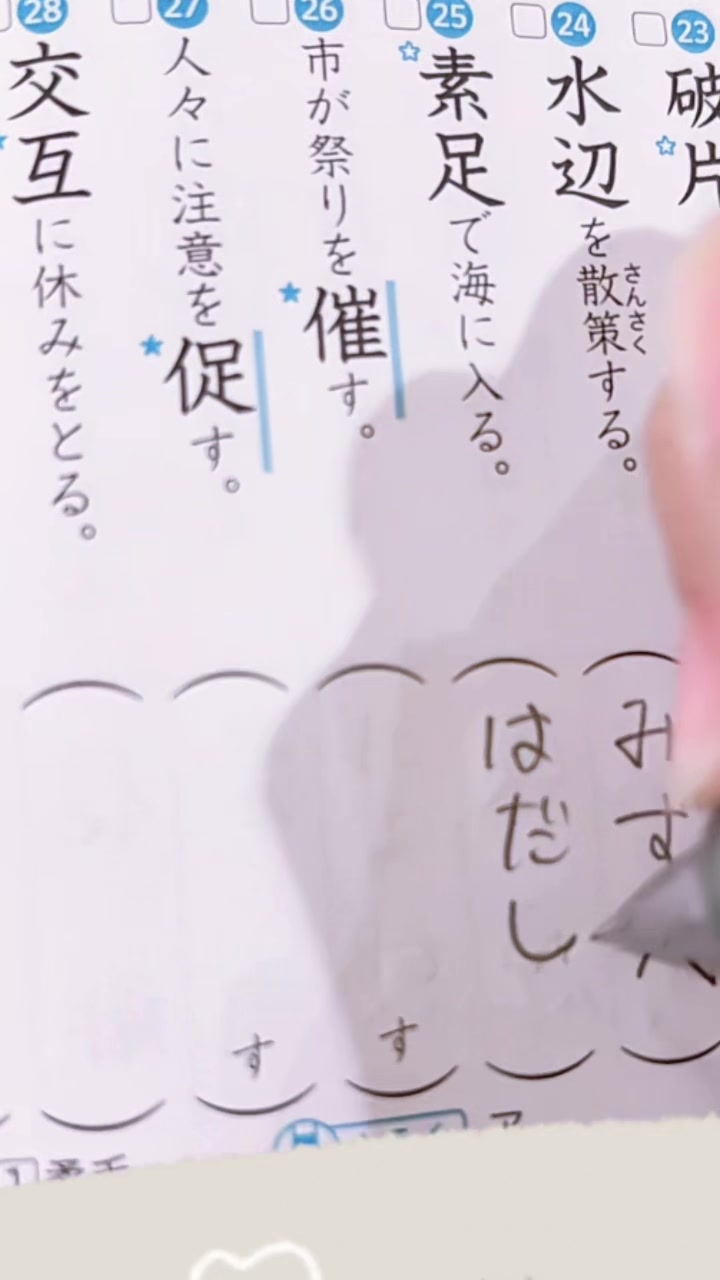 23
破片
24
水辺を散策する。
さんさく
25
素足で海に入る。
26
市が祭りを催す。
27
人々に注意を促す。
28
交互に休みをとる。
はだし
す
す
ア